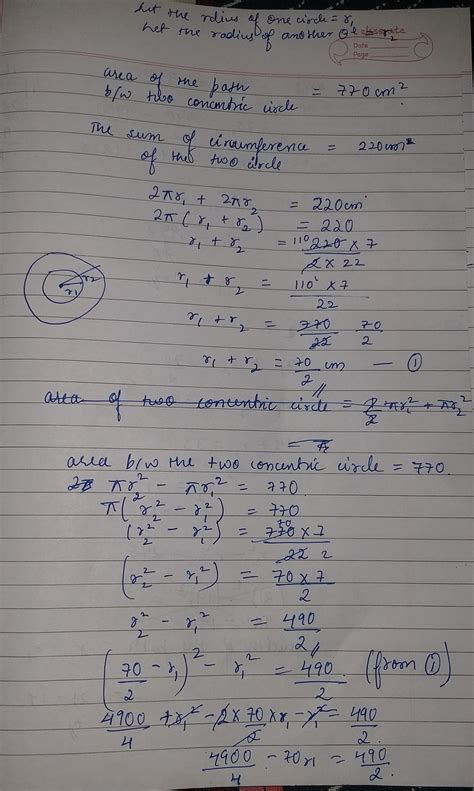 Let the rdius of one circle = r₁
Let the radius of another = r₂
classmate
Date
Page
area of the path = 770cm²
b/w two concentric circle
The sum of circumference = 220cm
of the two circle
2πr₁ + 2πr₂ = 220cm
2π(r₁ + r₂) = 220
r₁ + r₂ = 110 220 × 7 / 2 × 22
r₁ + r₂ = 110 × 7 / 22
r₁ + r₂ = 770 / 22 70 / 2
r₁ + r₂ = 70 / 2 cm — ①
r₁ r₂
area of two concentric circle = πr₁² + πr₂²
= π
area b/w the two concentric circle = 770.
πr₂² - πr₁² = 770.
π(r₂² - r₁²) = 770
(r₂² - r₁²) = 70 770 × 7 / 22 2
(r₂² - r₁²) = 70 × 7 / 2
r₂² - r₁² = 490 / 2
(70 / 2 - r₁)² - r₁² = 490 / 2. (from ①)
4900 / 4 + r₁² - 2 × 70 / 2 × r₁ - r₁² = 490 / 2.
4900 / 4 - 70r₁ = 490 / 2.